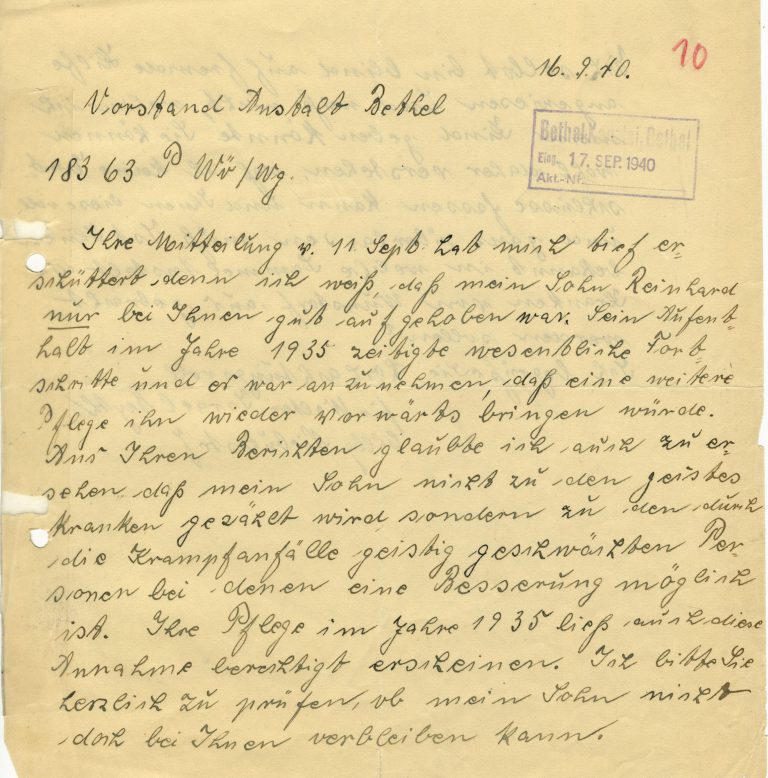 10
16. 9. 40.
Vorstand Anstalt Bethel
Bethel Bethel
Eing. 17. SEP. 1940
Akt.-Nr.
183 63 P Wö/Wg.
Ihre Mitteilung v. 11 Sept. hat mich tief er-
schüttert, denn ich weiß, daß mein Sohn Reinhard
nur bei Ihnen gut aufgehoben war. Sein Aufent-
halt im Jahre 1935 zeitigte wesentliche Fort-
schritte und er war anzunehmen, daß eine weitere
Pflege ihn wieder vorwärts bringen würde.
Aus Ihren Berichten glaubte ich auch zu er-
sehen daß mein Sohn nicht zu den geistes
kranken gezählt wird, sondern zu den durch
die Krampfanfälle geistig geschwächten Per-
sonen bei denen eine Besserung möglich
ist. Ihre Pflege im Jahre 1935 ließ auch diese
Annahme berechtigt erscheinen. Ich bitte Sie
herzlich zu prüfen, ob mein Sohn nicht
doch bei Ihnen verbleiben kann.